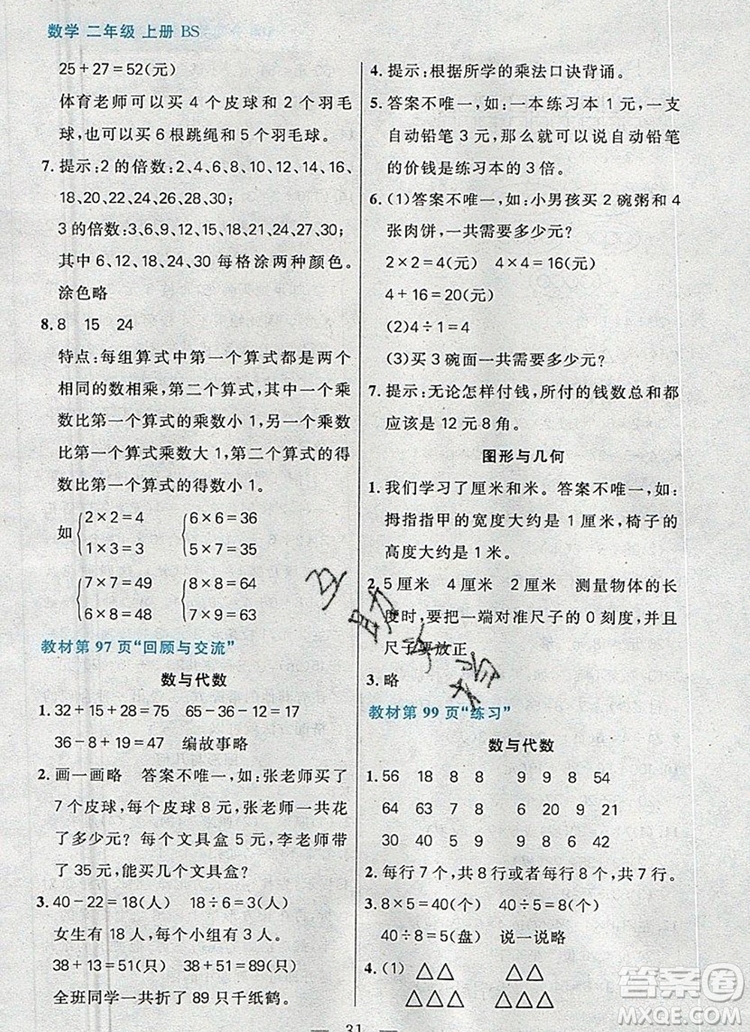 数学 二年级 上册 BS
25+27=52(元)
体育老师可以买 4 个皮球和 2 个羽毛
球,也可以买 6 根跳绳和 2 个羽毛球。
7. 提示:2 的倍数:2、4、6、8、10、12、14、16、
18、20、22、24、26、28、30;
3 的倍数:3、6、9、12、15、18、21、24、27、30;
其中 6、12、18、24、30 每格涂两种颜色。
涂色略
8. 8 15 24
特点:每组算式中第一个算式都是两个
相同的数相乘,第二个算式,其中一个乘
数比第一个算式的乘数小 1,另一个乘数
比第一个算式乘数大 1,第二个算式的得
数比第一个算式的得数小 1。
如{2×2=4 {6×6=36
1×3=3 5×7=35
{7×7=49 {8×8=64
6×8=48 7×9=63
教材第 97 页“回顾与交流”
数与代数
1. 32+15+28=75 65-36-12=17
36-8+19=47 编故事略
2. 画一画略 答案不唯一,如:张老师买了
7 个皮球,每个皮球 8 元,张老师一共花
了多少元? 每个文具盒 5 元,李老师带
了 35 元,能买几个文具盒?
3. 40-22=18(人) 18÷6=3(人)
女生有 18 人,平均每个小组有 3 女生。
38+13=51(只) 38+51=89(只)
全班同学一共折了 89 只千纸鹤。
4. 提示:根据所学的乘法口诀背诵。
5. 答案不唯一,如:一本练习本 1 元,一支
自动铅笔 3 元,所以可以说自动铅笔
的价钱是练习本的 3 倍。
6. (1)答案不唯一,如:小男孩买 2 碗粥和 4
张肉饼,一共需要多少元?
2×2=4(元) 4×4=16(元)
4+16=20(元)
(2)4÷1=4
(3)买 3 碗面一共需要多少元?
7. 提示:无论怎样付钱,所付的钱数总和都
应该是 12 元 8 角。
图形与几何
1. 我们学习了厘米和米。答案不唯一,如:
拇指指甲的宽度大约是 1 厘米,椅子的
高度大约是 1 米。
2. 5 厘米 4 厘米 测量物体的长
度时,要把一端对准尺子的 0 刻度,并且
尺子要放正。
3. 略
教材第 99 页“练习”
数与代数
1. 56 18 8 8 9 9 8 54
64 63 7 8 4 9 8 21
30 40 5 9 9 8 6 42
2. 每行 7 个,共 8 行或者每行 8 个,共 7 行。
3. 8×5=40(个) 40÷5=8(个)
40÷8=5(盘) 说一说略
4. (1) △△ △△ △△
△△△ △△△ △△△
31
互助文档
答案圈
MXQE.COM